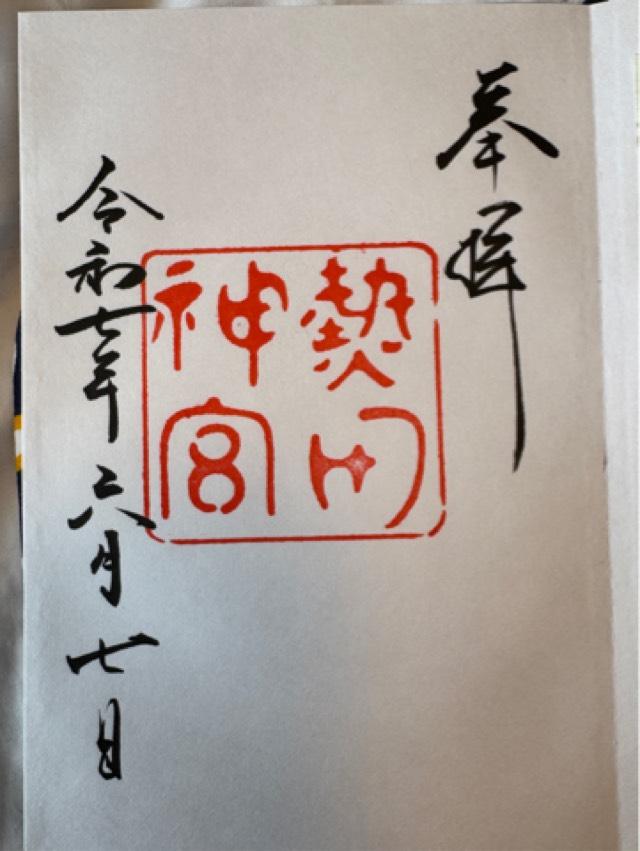 奉拝
熱田
神宮
令和七年六月七日